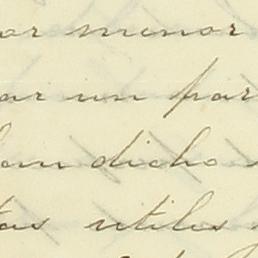 or menor
ar un par
an dicho
tas utiles